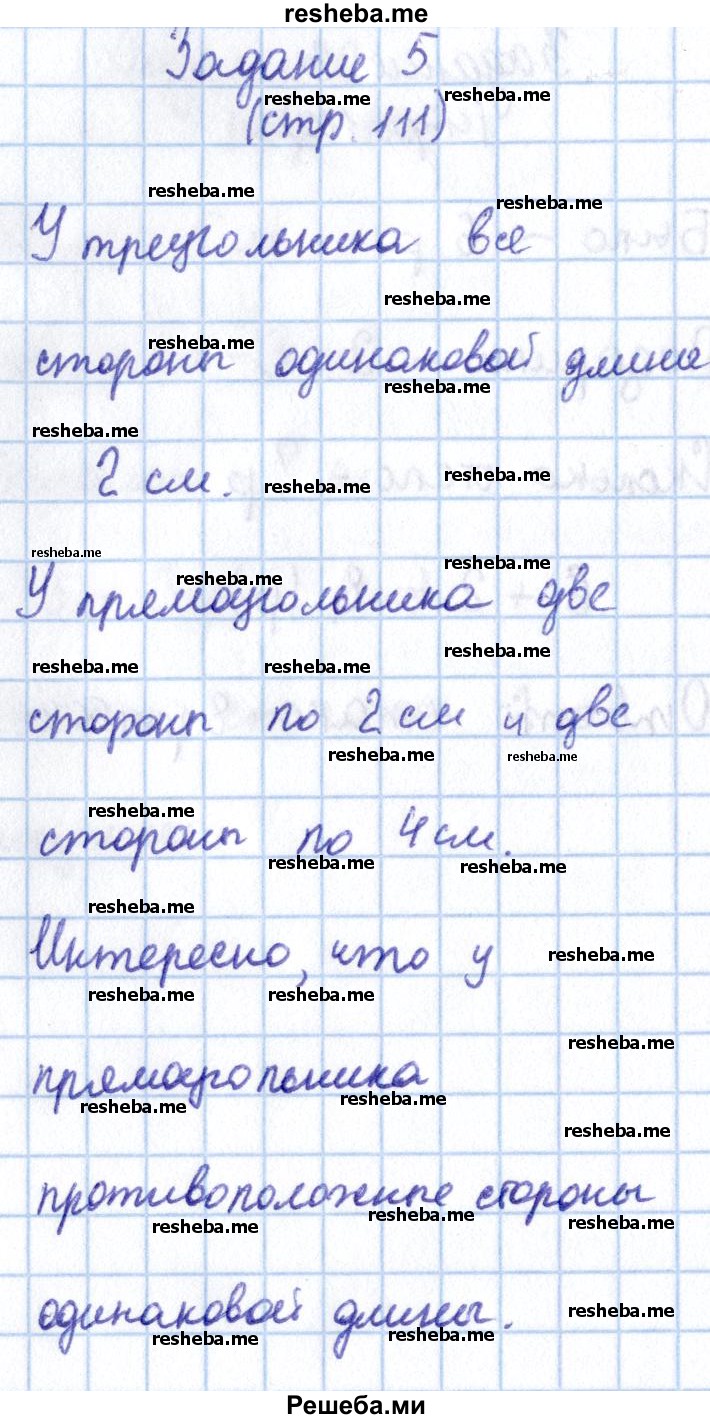 resheba.me
Задание 5
resheba.me resheba.me
(стр. 111)
resheba.me resheba.me
У треугольника все
resheba.me
resheba.me
стороны одинаковой длины
resheba.me
resheba.me
2 см. resheba.me resheba.me
resheba.me resheba.me resheba.me
У прямоугольника две
resheba.me resheba.me resheba.me
стороны по 2 см и две
resheba.me resheba.me
resheba.me
стороны по 4 см.
resheba.me resheba.me
resheba.me
Интересно, что у resheba.me
resheba.me resheba.me
resheba.me
прямоугольника
resheba.me resheba.me
resheba.me
противоположные стороны
resheba.me resheba.me resheba.me
одинаковой длины. resheba.me
resheba.me resheba.me
Решеба.ми